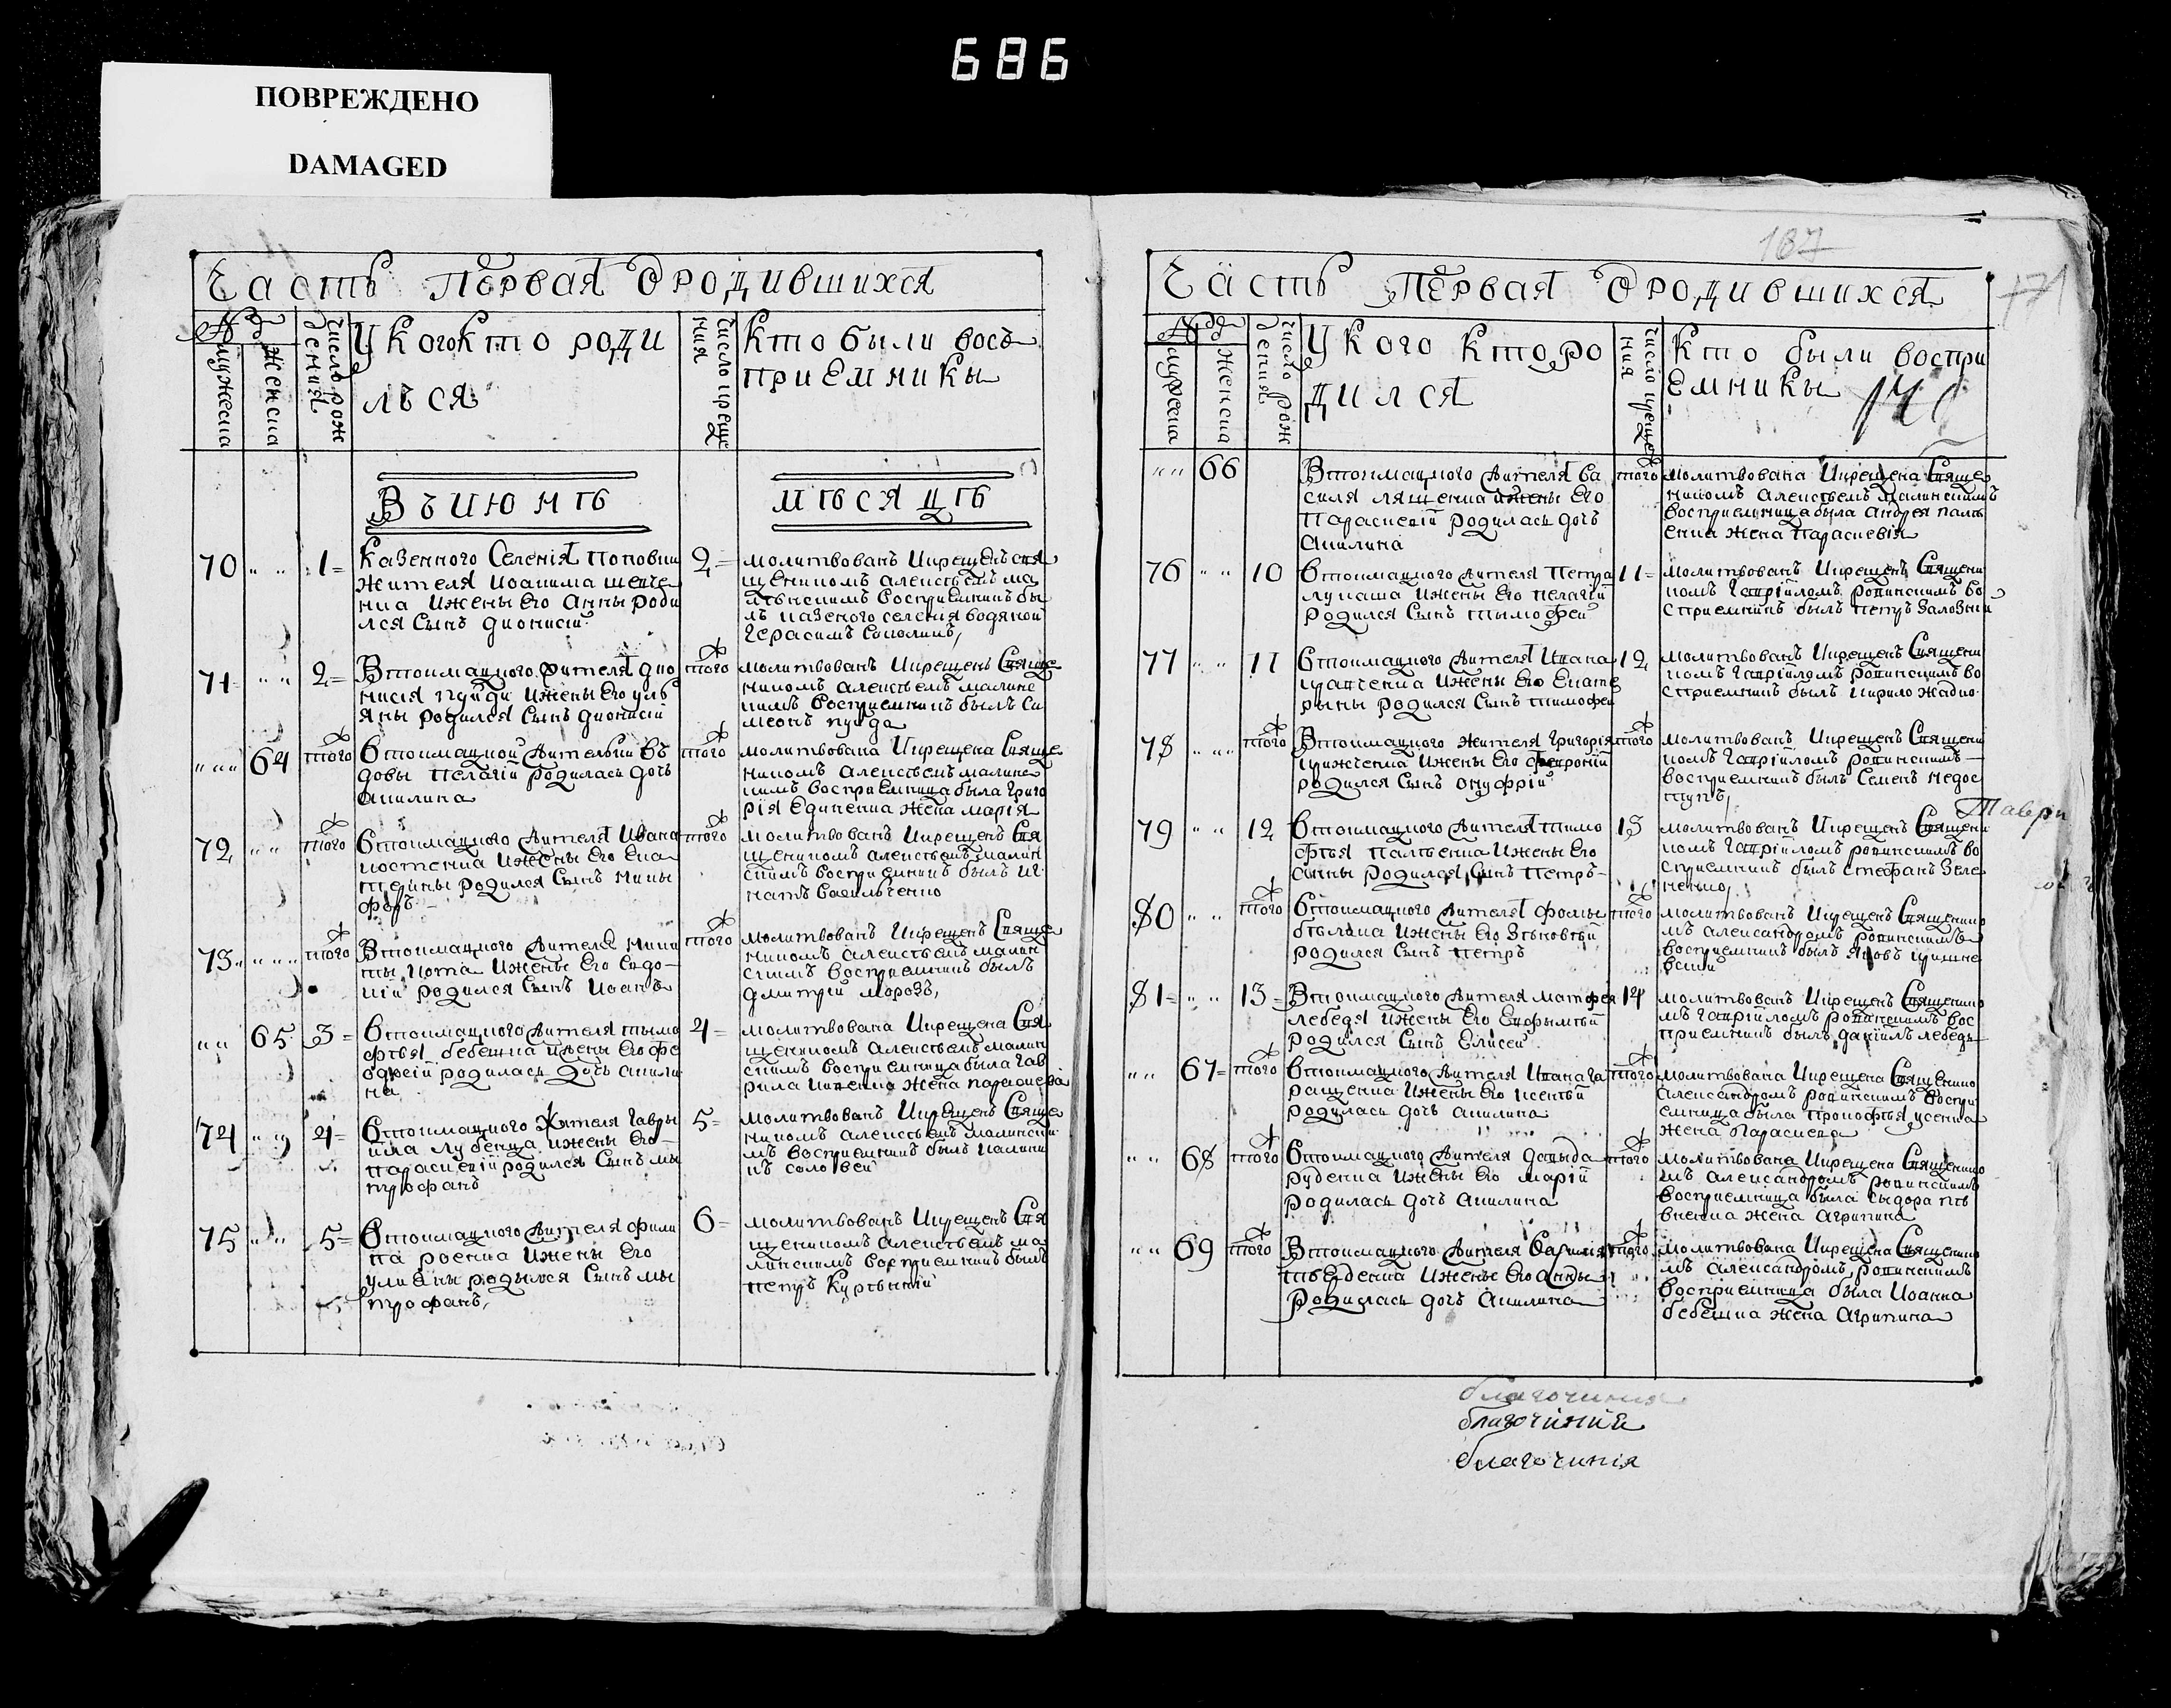 686
ПОВРЕЖДЕНО
DAMAGED
Часть первая ѡ родившихся
№
мужеска
женска
число рож
дения
У кого кто роди
лъся
число креще
ния
Кто были вось
приемники
Въ июнѣ
мѣсяцѣ
70 „ „ 1
Казенного Селенія Поповки
жителя Иоакима шевче
нка ижены Его Анны роди
лся Сынъ Дионисій
2
молитвованъ Икрещенъ свя
щенникомъ алексѣемъ ма
лѣнскимъ восприемникъ бы
лъ казеного селенія водяной
Герасимъ Соколикъ,
71 „ „ 2
Втоимацкого жителя дио
нисія пуйди ижены Его уль
яны родился Сынъ дионисій
того
молитвованъ Икрещенъ Свяще
никомъ алексѣемъ малине
кимъ восприемникъ былъ си
меонъ пуйда
„ „ 64 того
втоимацкой жителъки въ
довы пелагіи родилась дочь
акилина
того
молитвована Икрещена Свяще
никомъ алексѣемъ малине
кимъ восприемница была григо
рія Единенка жена марія
72 „ „ того
втоимацкого жителя Ивана
костенка ижены Его Ека
терины родился Сынъ ники
форъ
того
молитвованъ Икрещенъ Свя
щеникомъ алексѣемъ малин
скимъ восприемникъ былъ иг
натъ василченко
73 „ „ того
Втоимацкого жителя мики
ты кота ижены Его Евдо
кіи родился Сынъ Иоанъ
того
молитвованъ Икрещенъ Свяще
никомъ алексѣемъ малин
скимъ восприемникъ былъ
дмитрій морозъ,
„ „ 65 3
втоимацкого жителя тымо
фѣя бебешка ижены Его фе
одосіи родилась Дочь акили
на
4
молитвована Икрещена Свя
щеникомъ алексѣемъ малин
скимъ восприемница была гав
рила жена параскева
74 „ „ 4
втоимацкого жителя гаври
ила лубенца ижены Его
параскевіи родился Сынъ мы
трофанъ
5
молитвованъ Икрещенъ Свяще
никомъ алексѣемъ малински
мъ восприемникъ былъ калини
къ соловей
75 „ „ 5
втоимацкого жителя фили
па роенка ижены Его
улияны родылся Сынъ мы
трофанъ,
6
молитвованъ Икрещенъ Свя
щеникомъ алексѣемъ ма
линскимъ восприемникъ былъ
петръ Куръвкій
187
171
Часть первая ѡ родившихся
№
мужеска
женска
число рож
дения
У кого кто ро
дился
число креще
ния
Кто были воспри
емники
„ „ 66
Втоимацкого жителя Ва
силя лященка ижены Его
параскевіи родилась дочь
акилина
того
молитвована Икрещена Свяще
никомъ алексѣемъ малинскимъ
восприемница была андрея палъ
енка жена параскевія
76 „ „ 10
втоимацкого жителя петра
лукаша ижены Его пелагіи
родился Сынъ тымофей
11
молитвованъ Икрещенъ Священи
комъ гавріиломъ ровинскимъ во
сприемникъ былъ петръ Залозный
77 „ „ 11
втоимацкого жителя Ивана
кравченка ижены Его Екате
рыны родился Сынъ тимофей
12
молитвованъ Икрещенъ Священи
комъ гавріиломъ ровинскимъ во
сприемникъ былъ кирило жадко
78 „ „ того
Втоимацкого жителя григорія
ижены Его февроніи
родился Сынъ онуфрій
того
молитвованъ Икрещенъ Священи
комъ гавріиломъ ровинскимъ
восприемникъ былъ Семенъ недос
тупъ
79 „ „ 12
втоимацкого жителя тимо
фѣя палѣенка ижены Его
анны родился Сынъ петръ
13
молитвованъ Икрещенъ Священи
комъ гавріиломъ ровинскимъ во
сприемникъ былъ стефанъ Зеле
ненко,
Таври
80 „ „ того
втоимацкого жителя фомы
бѣлана ижены Его Зѣновѣи
родился Сынъ петръ
того
молитвованъ Икрещенъ Священико
мъ александромъ ровинскимъ
восприемникъ былъ яковъ кришне
вскій
81 „ „ 13
Втоимацкого жителя матфея
лебедя ижены Его Евфымѣи
родился Сынъ Елисей
14
молитвованъ Икрещенъ Священико
мъ гавріиломъ ровинскимъ вос
приемникъ былъ даніилъ лебедь
„ „ 67 того
втоимацкого жителя Ивана га
ращенка ижены Его ксенѣи
родилась дочъ акилина
того
молитвована Икрещена Священико
александромъ ровинскимъ воспри
емница была прокофѣя усенка
жена Параскева
„ „ 68 того
втоимацкого жителя давыда
руденка ижены Его маріи
родилась дочъ акилина
того
молитвована Икрещена Священико
мъ александромъ ровинскимъ
восприемница была сыдора пѣ
вненка жена агрипина
„ „ 69 того
Втоимацкого жителя Василія
швеДенка ижены Его анны
родилась дочъ акилина
того
молитвована Икрещена Священико
мъ александромъ ровинскимъ
восприемница была Иоанна
бебешка жена агрипина
благочиния
благочиній
благочинія